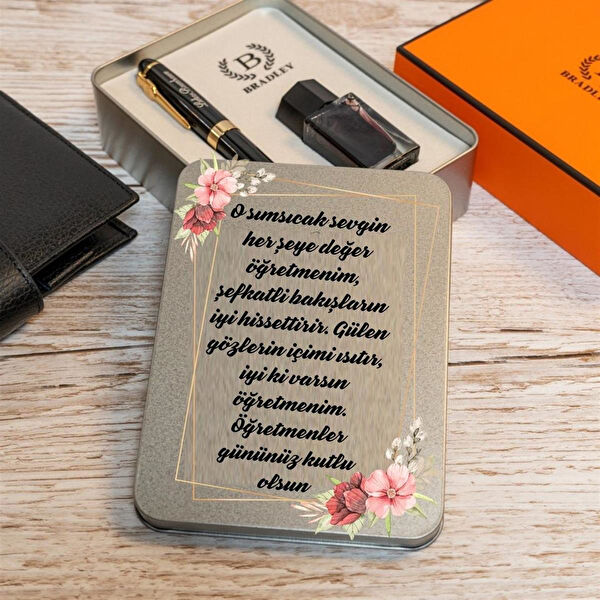 B
BRADLEY
B
BRADLEY
O sımsıcak sevgin
her şeye değer
öğretmenim,
şefkatli bakışların
iyi hissettirir. Gülen
gözlerin içimi ısıtır,
iyi ki varsın
öğretmenim.
Öğretmenler
gününüz kutlu
olsun